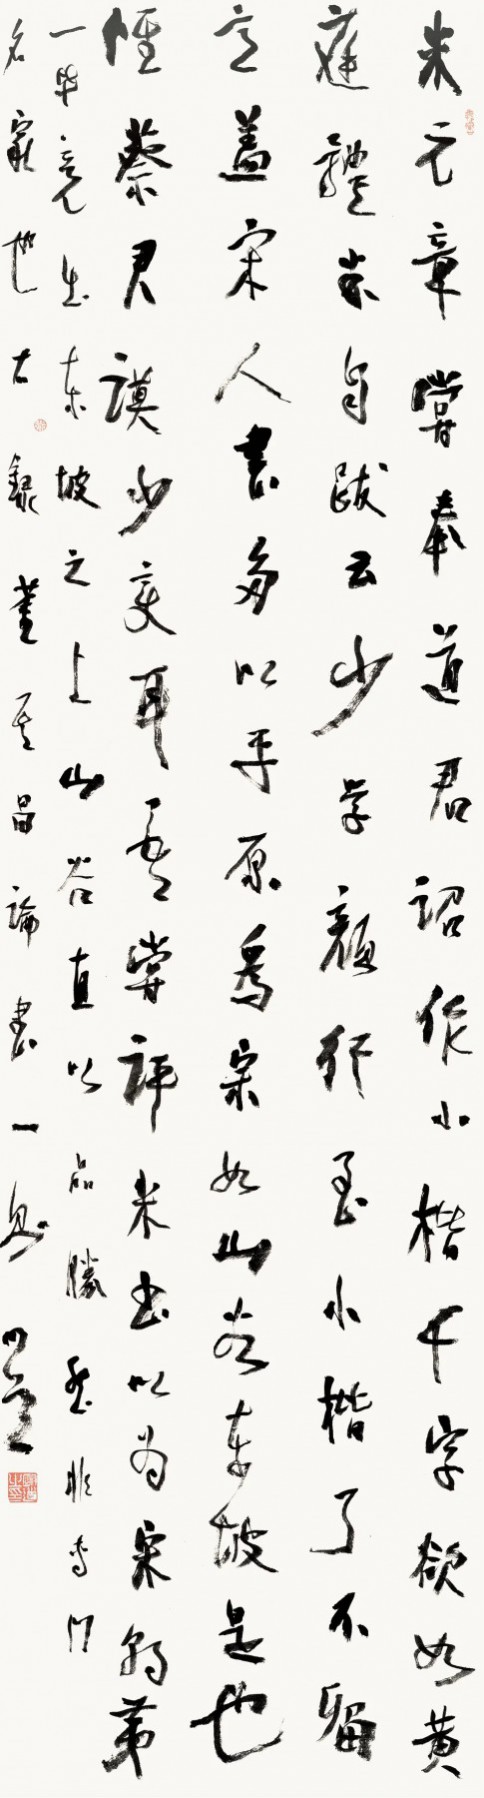 米元章嘗奉道君詔作小楷千字欲如黄
庭體米自跋云少學顔行至小楷了不留
意蓋宋人書多以平原爲宗如山谷東坡是也
惟蔡君謨少變耳吾嘗評米書以爲宋朝第
一畢竟出東坡之上山谷直以品勝然非專門
名家也右録董其昌論書一則